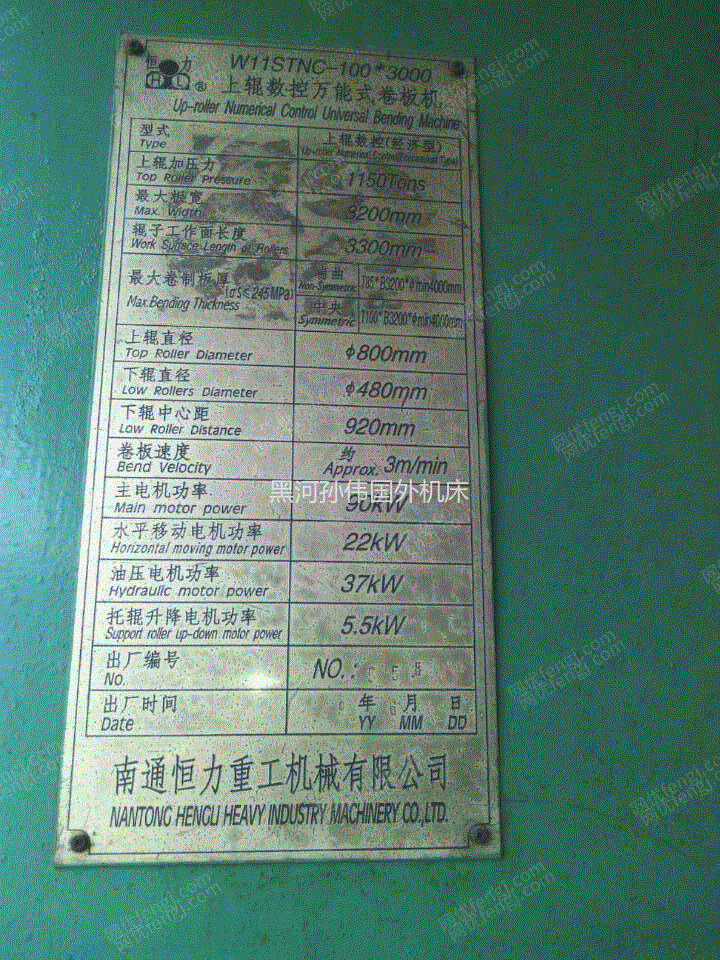 恒力
W11STNC-100*3000
®
上辊数控万能式卷板机
Up-roller Numerical Control Universal Bending Machine
型式
Type
上辊数控(经济型)
上辊加压力
Top Roller Pressure
1150Tons
最大板宽
Max. Width
3200mm
辊子工作面长度
Work Surface Length of Rollers
3300mm
最大卷制板厚
Max.Bending Thickness
(σS≤245MPa)
Non-Symmetric
中央
Symmetric
上辊直径
Top Roller Diameter
φ800mm
下辊直径
Low Rollers Diameter
φ480mm
下辊中心距
Low Roller Distance
920mm
卷板速度
Bend Velocity
约
Approx. 3m/min
黑河孙伟国外机床
主电机功率
Main motor power
90kW
水平移动电机功率
Horizontal moving motor power
22kW
油压电机功率
Hydraulic motor power
37kW
托辊升降电机功率
Support roller up-down motor power
5.5kW
出厂编号
No.
NO.:
出厂时间
Date
年 月 日
YY MM DD
南通恒力重工机械有限公司
NANTONG HENGLI HEAVY INDUSTRY MACHINERY CO.,LTD.